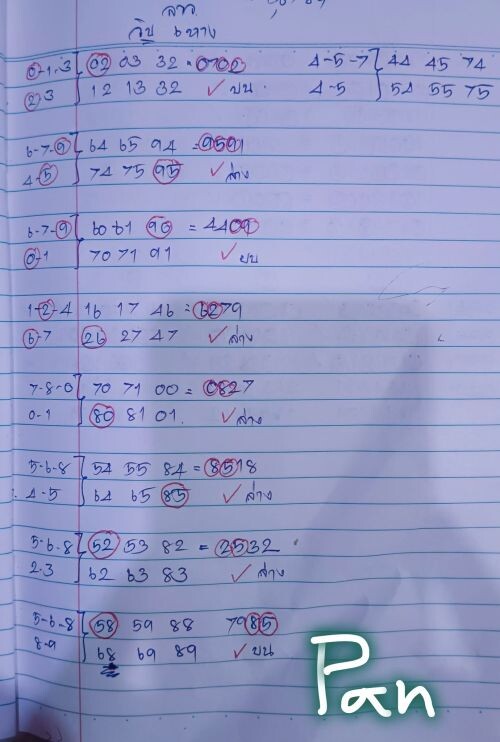 ลาว
วิน 6 หาง
0-1.3 02 03 32 = 0702 4-5-7 44 45 74
2.3 12 13 32 ✓ บน. 4-5 54 55 75
6-7-9 64 65 94 = 9591
4-5 74 75 95 ✓ ล่าง
6-7-9 60 61 90 = 4409
0-1 70 71 91 ✓ บน
1-2-4 16 17 46 = 6279
6-7 26 27 47 ✓ ล่าง
7-8-0 70 71 00 = 0827
0-1 80 81 01. ✓ ล่าง
5-6-8 54 55 84 = 8518
4-5 64 65 85 ✓ ล่าง
5-6-8 52 53 82 = 2532
2.3 62 63 83 ✓ ล่าง
5-6-8 58 59 88 7985
8-9 68 69 89 ✓ บน
Pan